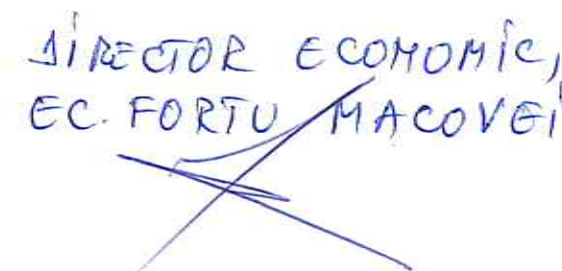 DIRECTOR ECONOMIC,
EC. FORTU MACOVEI